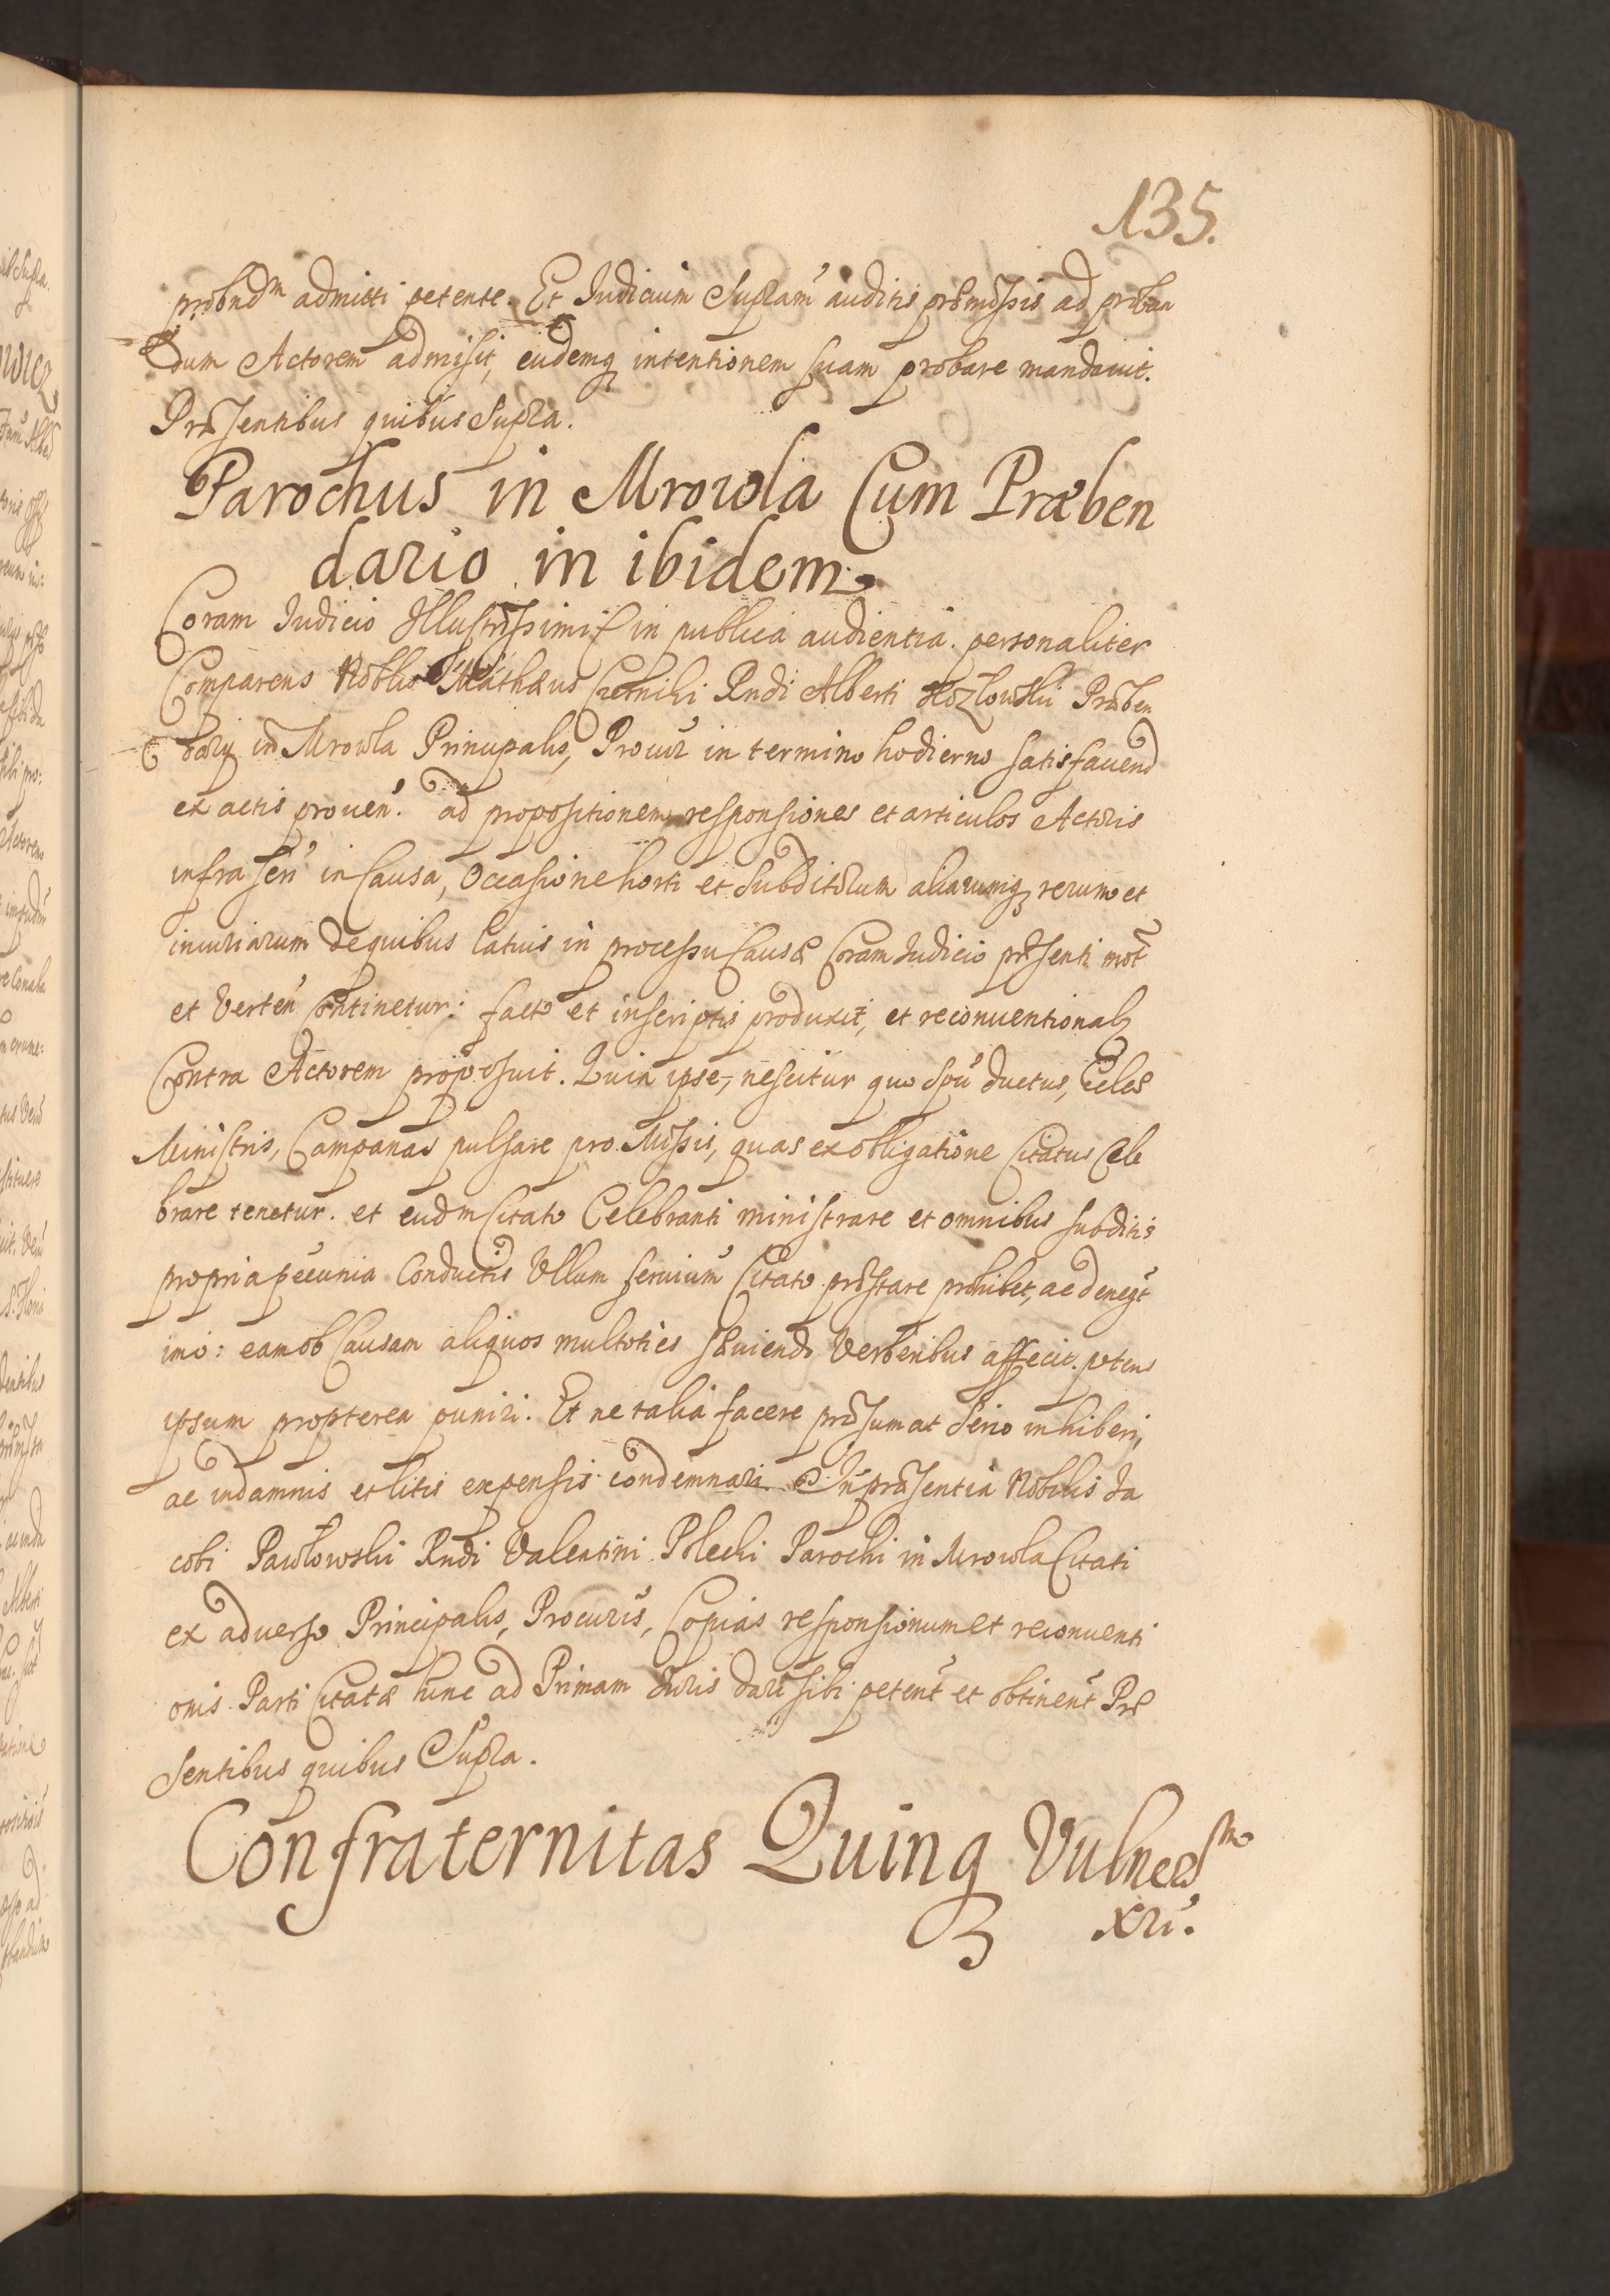 135.
probndm admitti petente. Et Iudicium Supram auditis præmissis ad proban
dum Actorem admisit, eidemq intentionem suam probare mandavit.
Præsentibus quibus Supra.
Parochus in Mrowla Cum Præben
dario in ibidem.
Coram Iudicio Illustrissimi in publica audientia. personaliter
Comparens Noblis Mathæus Rndi Alberti Kozlowski Præben
darij in Mrowla Principalis, Procur in termino hodierno satisfaciend
ex actis proven. ad propositionem responsiones et articulos Actoris
infra scri in Causa, Occasione horti et Subditorum aliarumq rerum et
iniuriarum de quibus latius in processu Causæ Coram Iudicio præsenti mot
et Verten Continetur: facto et inscriptis produxit, et reconuentional
Contra Actorem proposuit. Quia ipse, nescitur quo Spu ductus, Ecclæ
Ministris, Campanas pulsare pro Missis, quas ex obligatione Citatus Cele
brare tenetur. et eudm Citato Celebranti ministrare et omnibus subditis
propria pecunia Conductis Ullum servium Citato præstare prohibet, ac denegt
imo: eam ob Causam aliquos multoties sæuiendo Verberibus affecit. petens
ipsum propterea puniri. Et ne talia facere præsumat Serio inhiberi,
ac in damnis et litis expensis condemnari. In præsentia Nobilis Ja
cobi Pawlowski Rndi Valentini Plecki Parochi in Mrowla Citati
ex adverso Principalis, Procuris, Copias responsionum et reconuenti
onis Parti Citatæ hinc ad Primam Juris dari sibi petent et obtinent Præ
sentibus quibus Supra.
Confraternitas Quinq Vulner
Xri.